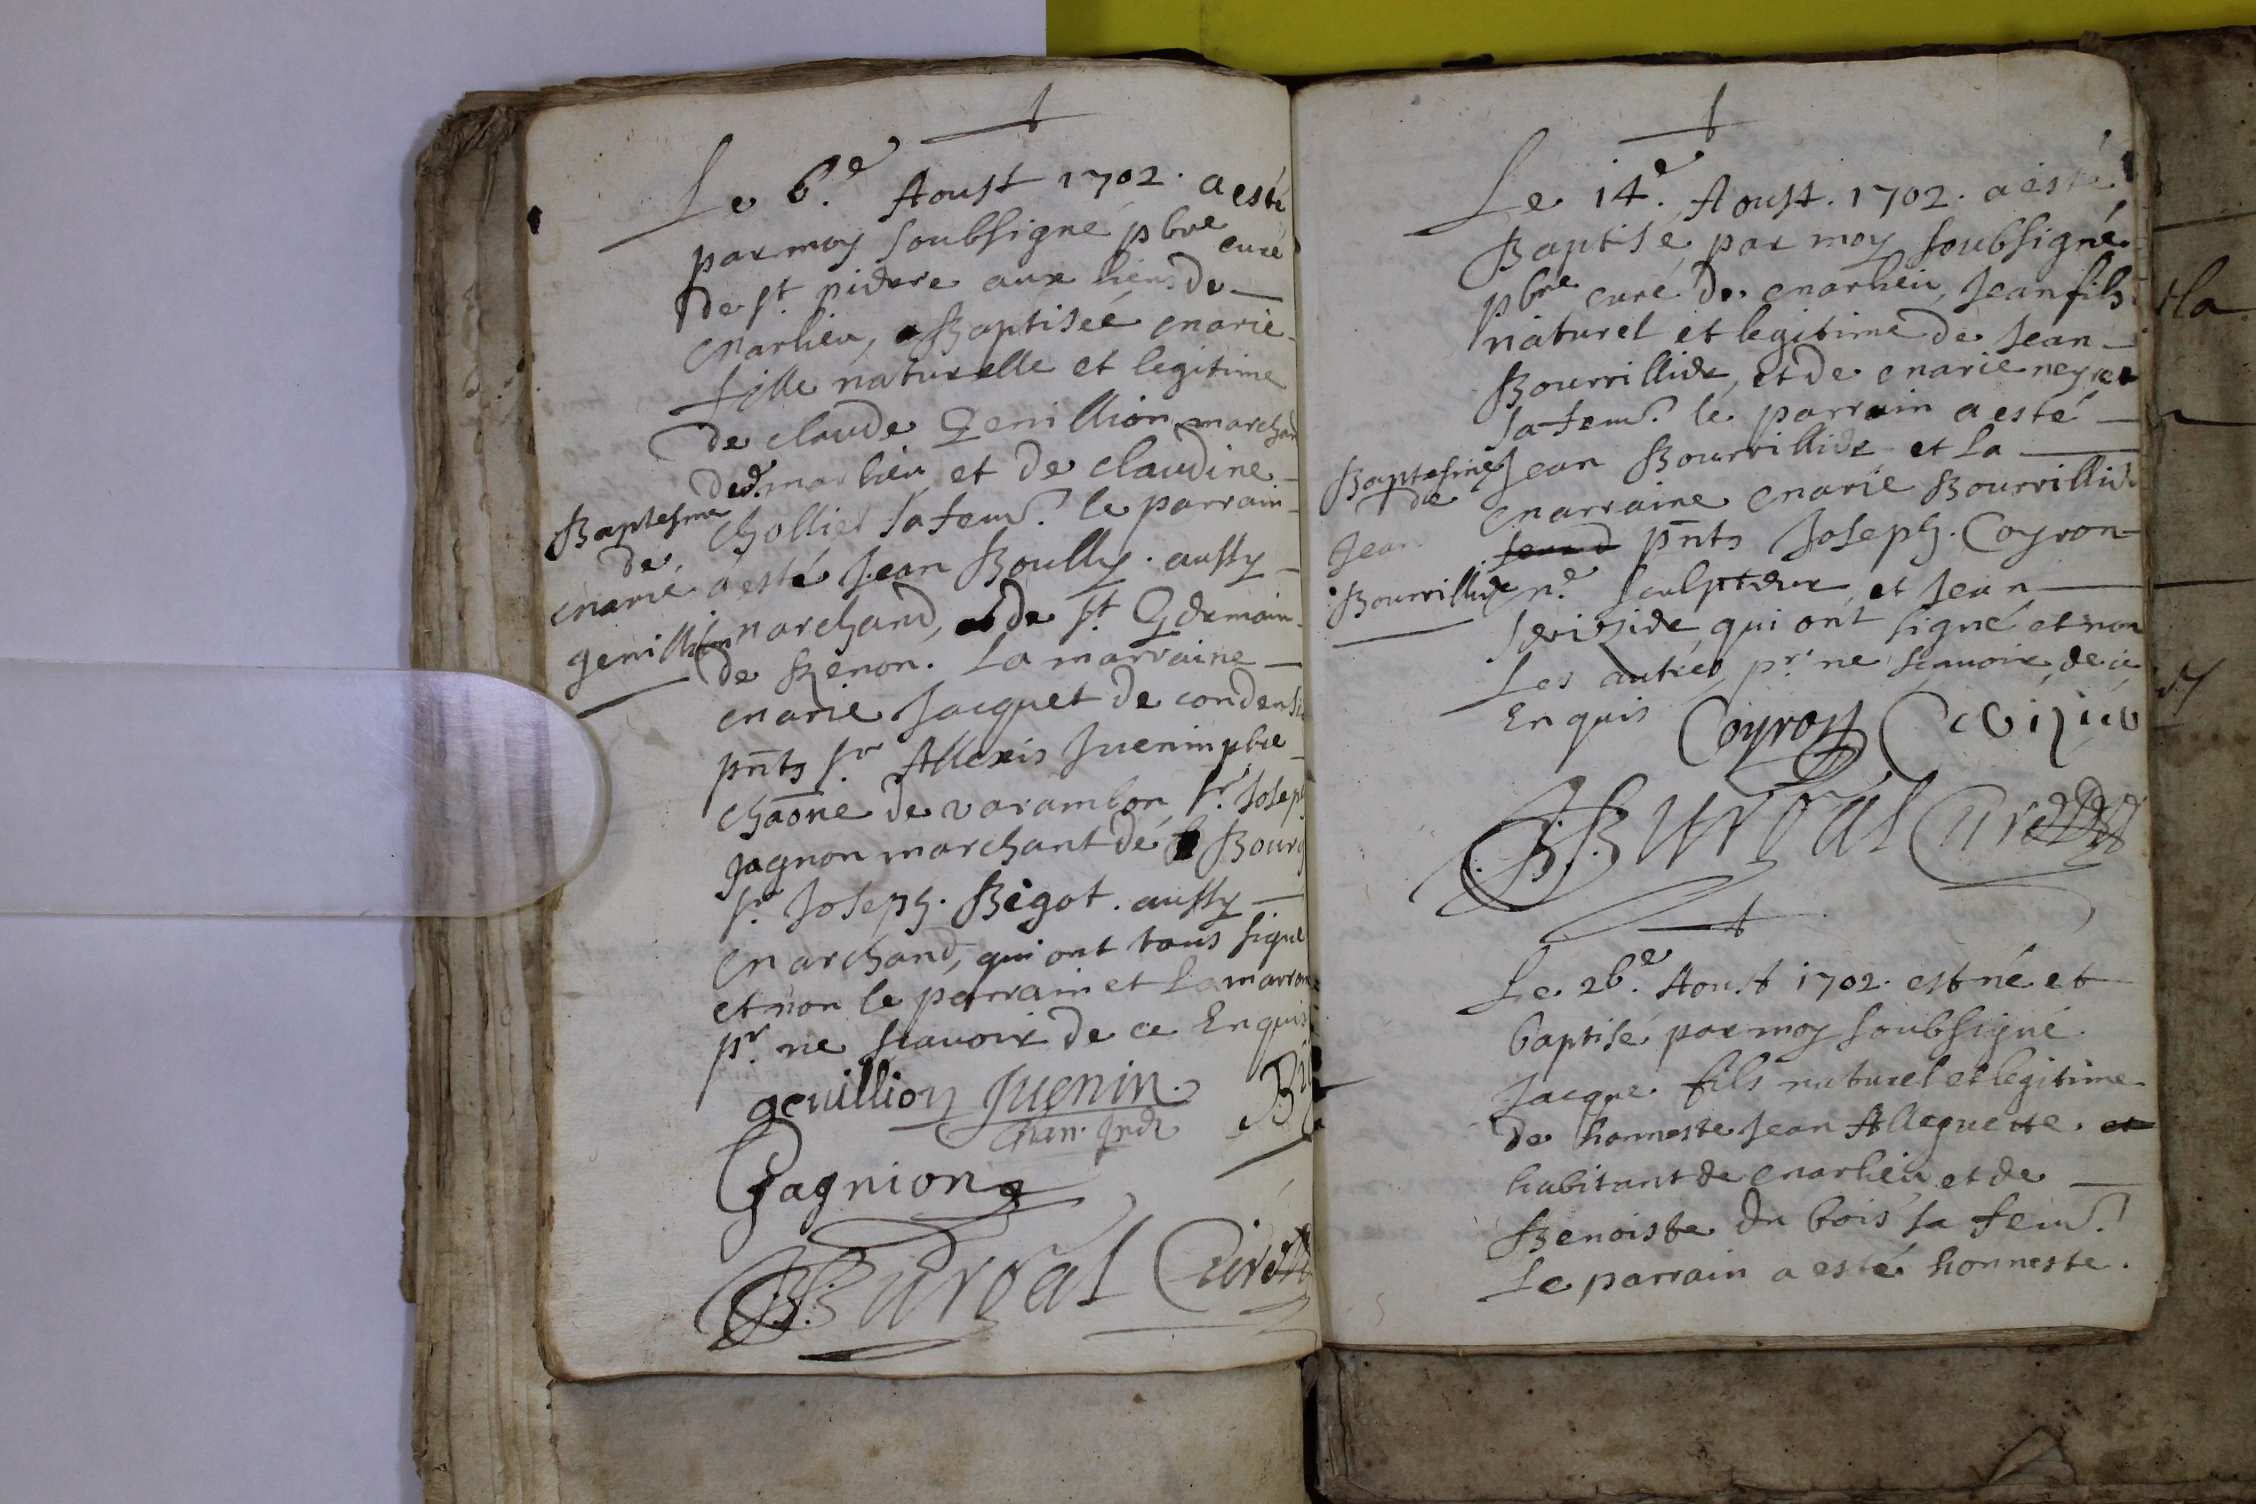 Le 6.e Aoust 1702. a esté
par moy soubsigné pbre curé
de st pierre aux liens de
Marlieu, Baptiséé Marie
fille naturelle et legitime
de claude Genillion marchand
dud. marlieu et de claudine
Chollier sa fem. le parrain
a esté Jean Boully. aussy
marchand, de st Germain
de Renon. La marraine
Marie Jacquet de condeysia
pnts sr Allexis Juenin pbre
chaône de varambon, sr. Joseph
gagnon marchant de Bourg
sr. Joseph. Bigot. aussy
Marchand, qui ont tous signe
et non le parrain et la marraine
pr. ne scavoir de ce Enquis
genillion Juenin.
Gagnion
Burdal Curé
Baptesme
de
Marie
genillion
Le 14.e Aoust. 1702. a esté
Baptisé par moy soubsigné
pbre curé de Marlieu, Jean fils
naturel et legitime de Jean
Bourrillier, et de Marie neyret
sa fem. le parrain a esté
Jean Bourrillier et la
Marraine Marie Bourrillier
pnts Joseph. Coyron
me. sculpteur, et Jean
qui ont signé et non
Les autres pr. ne scavoir, de ce
Enquis Coyron
Burdal Curé
Baptesme
de
Jean
Bourrillier
Le 26.e Aoust 1702. est né et
baptisé par moy soubsigné
Jacque fils naturel et legitime
de honneste Jean Alleguette. et
habitant de Marlieu et de
Benoiste du bois sa fem.
Le parrain a esté honneste.